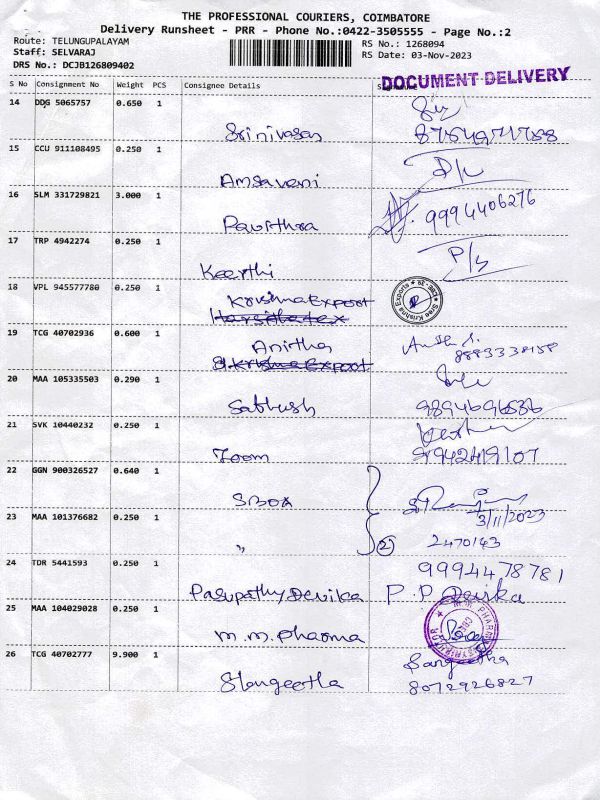 THE PROFESSIONAL COURIERS, COIMBATORE
Delivery Runsheet - PRR - Phone No.:0422-3505555 - Page No.:2
Route: TELUNGUPALAYAM
RS No.: 1268094
Staff: SELVARAJ
RS Date: 03-Nov-2023
DRS No.: DCJB126809402
DOCUMENT DELIVERY
S No Consignment No Weight PCS Consignee Details
14 DDG 5065757 0.650 1
Srinivasan 8754971788
15 CCU 911108495 0.250 1
Amsaveni
16 SLM 331729821 3.000 1
Pavithra 9994406276
17 TRP 4942274 0.250 1
Keerthi
18 VPL 945577780 0.250 1
Krishna Export
Sree Krishna Exports
19 TCG 40702936 0.600 1
Anitha 8883338158
S. Krishna Export
20 MAA 105335503 0.290 1
Sathish 9894696586
21 SVK 10440232 0.250 1
Zoom 9942419107
22 GGN 900326527 0.640 1
SBOX
3/11/2023
23 MAA 101376682 0.250 1
" (2) 2470143
24 TDR 5441593 0.250 1
9994478781
Pasupathy Devika P.P. Devika
25 MAA 104029028 0.250 1
M.M. Pharma
26 TCG 40702777 9.900 1
Sangeetha
Slangeetha 8072926827